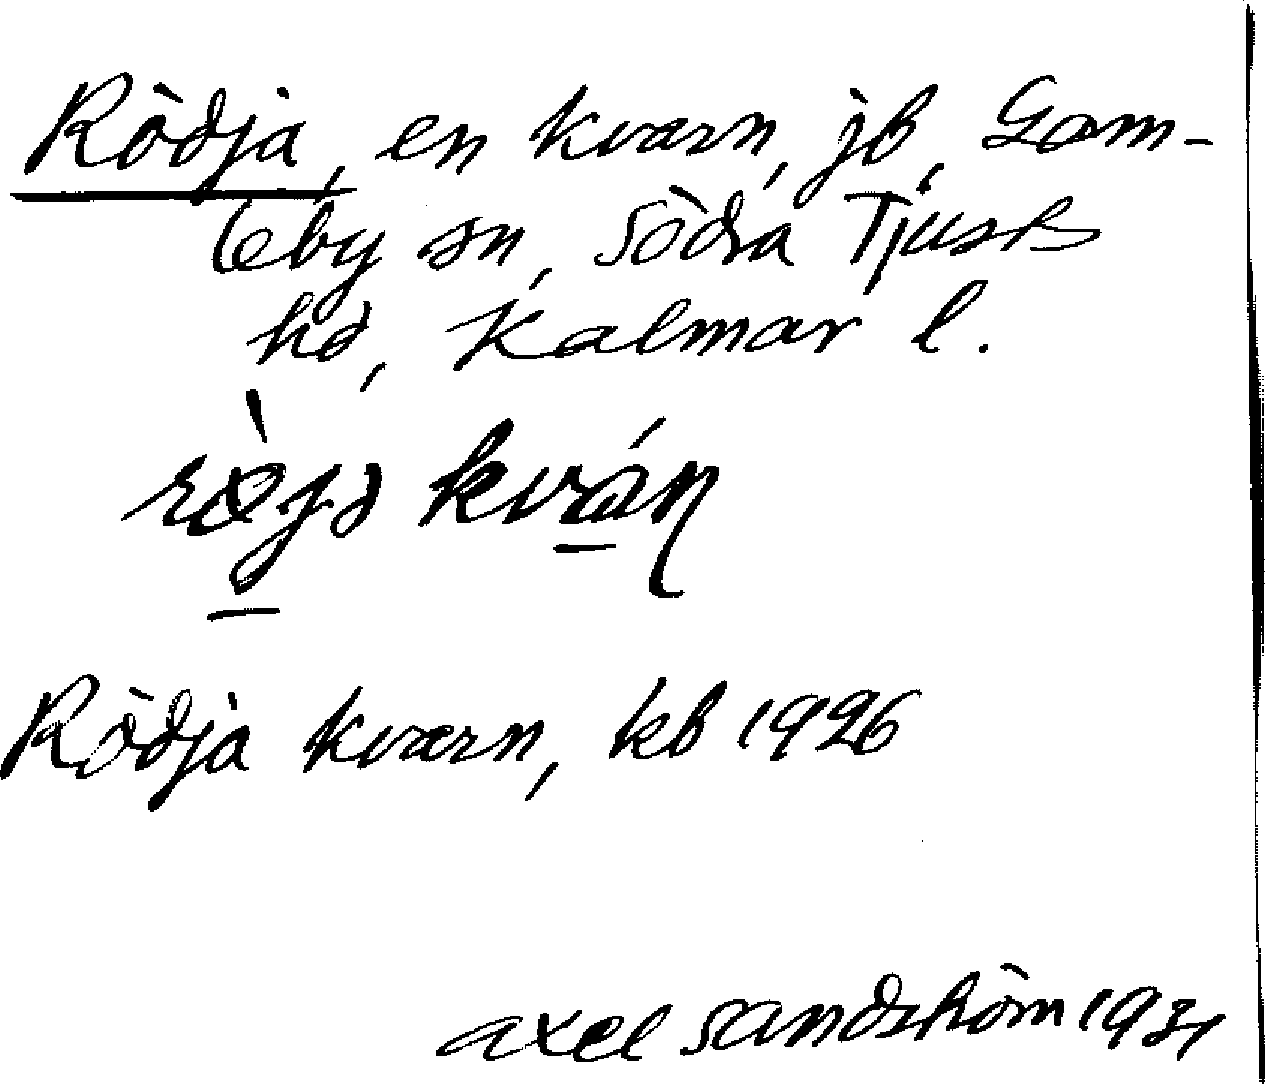 Rödja, en kvarn, jb, Gam-
leby sn, Södra Tjusts
hd, Kalmar l.
rö̀jə kván
Rödja kvarn, kb 1926
Axel Sandström 1931